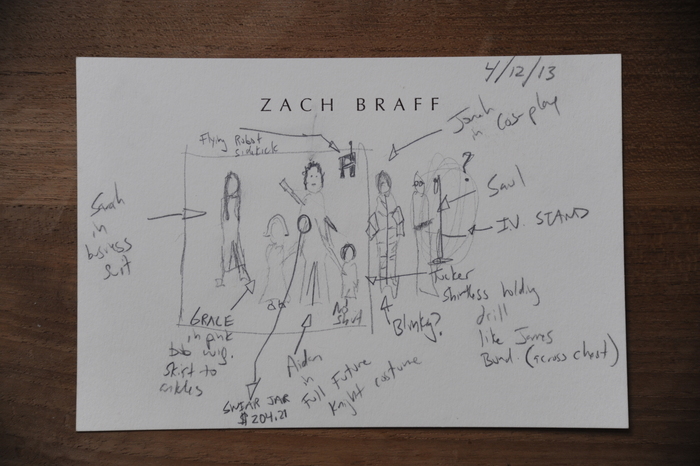 4/12/13
ZACH BRAFF
Flying Robot
Sidekick
Jonah
in Cosplay
?
Sarah
in
business
suit
Saul
I.V. STAND
GRACE
in pink
bob wig.
skirt to
ankles
SWEAR JAR
$204.21
Aidan
in
Full Future
Knight costume
No
Shirt
Blinky?
Tucker
shirtless holding
drill
like James
Bond. (across chest)